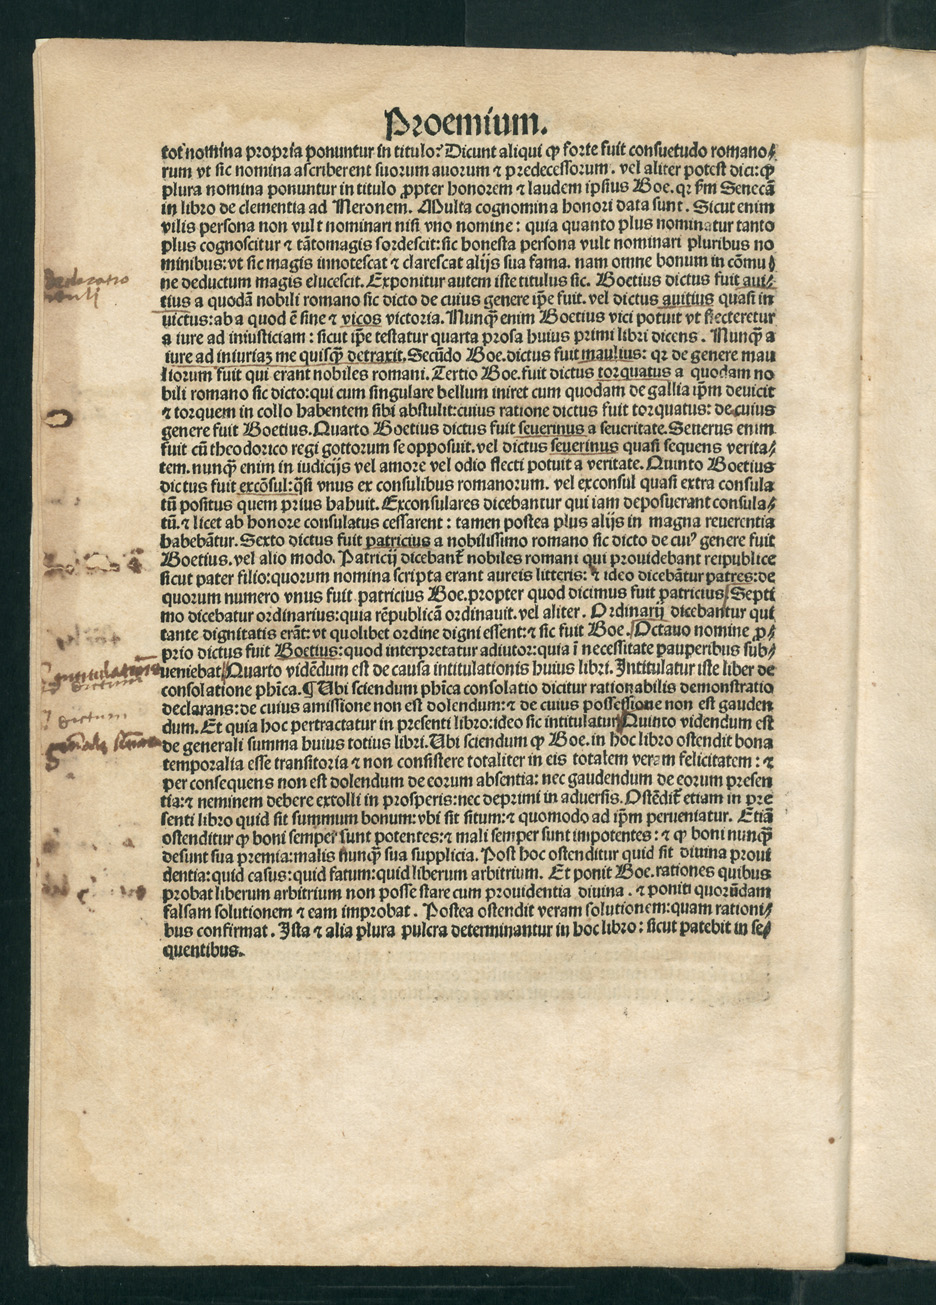 Proemium.
tot nomina propria ponuntur in titulo? Dicunt aliqui qꝙ forte fuit consuetudo romano⸗
rum vt sic nomina ascriberent suorum auorum ⁊ predecessorum. vel aliter potest dici: ꝙ
plura nomina ponuntur in titulo ꝓpter honorem ⁊ laudem ipsius Boe. qr fm Senecā
in libro de clementia ad Neronem. Multa cognomina honori data sunt. Sicut enim
vilis persona non vult nominari nisi vno nomine: quia quanto plus nominatur tanto
plus cognoscitur ⁊ tātomagis sordescit: sic honesta persona vult nominari pluribus no
minibus: vt sic magis innotescat ⁊ clarescat alijs sua fama. nam omne bonum in cōmu⸗
ne deductum magis elucescit. Exponitur autem iste titulus sic. Boetius dictus fuit aui⸗
tius a quodā nobili romano sic dicto de cuius genere ip̄e fuit. vel dictus auitius quasi in
uictus: ab a quod ē sine ⁊ vicos victoria. Nunqꝫ enim Boetius vici potuit vt flecteretur
a iure ad iniusticiam: sicut ip̄e testatur quarta prosa huius primi libri dicens. Nunqꝫ a
iure ad iniuriaꝫ me quisqꝫ detraxit. Secūdo Boe. dictus fuit maulius: qr de genere mau
liorum fuit qui erant nobiles romani. Tertio Boe. fuit dictus torquatus a quodam no
bili romano sic dicto: qui cum singulare bellum iniret cum quodam de gallia ip̄m deuicit
⁊ torquem in collo habentem sibi abstulit: cuius ratione dictus fuit torquatus: de cuius
genere fuit Boetius. Quarto Boetius dictus fuit seuerinus a seueritate. Seuerus enim
fuit cū theodorico regi gottorum se opposuit. vel dictus seuerinus quasi sequens verita⸗
tem. nunqꝫ enim in iudicijs vel amore vel odio flecti potuit a veritate. Quinto Boetius
dictus fuit excōsul: q̄si vnus ex consulibus romanorum. vel exconsul quasi extra consula
tū positus quem prius habuit. Exconsulares dicebantur qui iam deposuerant consula⸗
tū. ⁊ licet ab honore consulatus cessarent: tamen postea plus alijs in magna reuerentia
habebātur. Sexto dictus fuit patricius a nobilissimo romano sic dicto de cuiꝰ genere fuit
Boetius. vel alio modo. Patricij dicebant̄ nobiles romani qui prouidebant reipublice
sicut pater filio: quorum nomina scripta erant aureis litteris: ⁊ ideo dicebātur patres: de
quorum numero vnus fuit patricius Boe. propter quod dicimus fuit patricius. Septi
mo dicebatur ordinarius: quia rēpublicā ordinauit. vel aliter. Ordinarij dicebantur qui
tante dignitatis erāt: vt quolibet ordine digni essent: ⁊ sic fuit Boe. Octauo nomine ꝓ⸗
prio dictus fuit Boetius: quod interpretatur adiutor: quia ī necessitate pauperibus sub⸗
ueniebat. Quarto vidēdum est de causa intitulationis huius libri. Intitulatur iste liber de
consolatione ph̄ica. ¶ Ubi sciendum ph̄ica consolatio dicitur rationabilis demonstratio
declarans: de cuius amissione non est dolendum: ⁊ de cuius possessione non est gauden
dum. Et quia hoc pertractatur in presenti libro: ideo sic intitulatur. Quinto videndum est
de generali summa huius totius libri. Ubi sciendum ꝙ Boe. in hoc libro ostendit bona
temporalia esse transitoria ⁊ non consistere totaliter in eis totalem veram felicitatem: ⁊
per consequens non est dolendum de eorum absentia: nec gaudendum de eorum presen
tia: ⁊ neminem debere extolli in prosperis: nec deprimi in aduersis. Ostēdit̄ etiam in pre
senti libro quid sit summum bonum: vbi sit situm: ⁊ quomodo ad ip̄m perueniatur. Etiā
ostenditur ꝙ boni semper sunt potentes: ⁊ mali semper sunt impotentes: ⁊ ꝙ boni nunqꝫ
desunt sua premia: malis nunqꝫ sua supplicia. Post hoc ostenditur quid sit diuina proui
dentia: quid casus: quid fatum: quid liberum arbitrium. Et ponit Boe. rationes quibus
probat liberum arbitrium non posse stare cum prouidentia diuina. ⁊ poniti quorūdam
falsam solutionem ⁊ eam improbat. Postea ostendit veram solutionem: quam rationi⸗
bus confirmat. Ista ⁊ alia plura pulcra determinantur in hoc libro: sicut patebit in se⸗
quentibus.